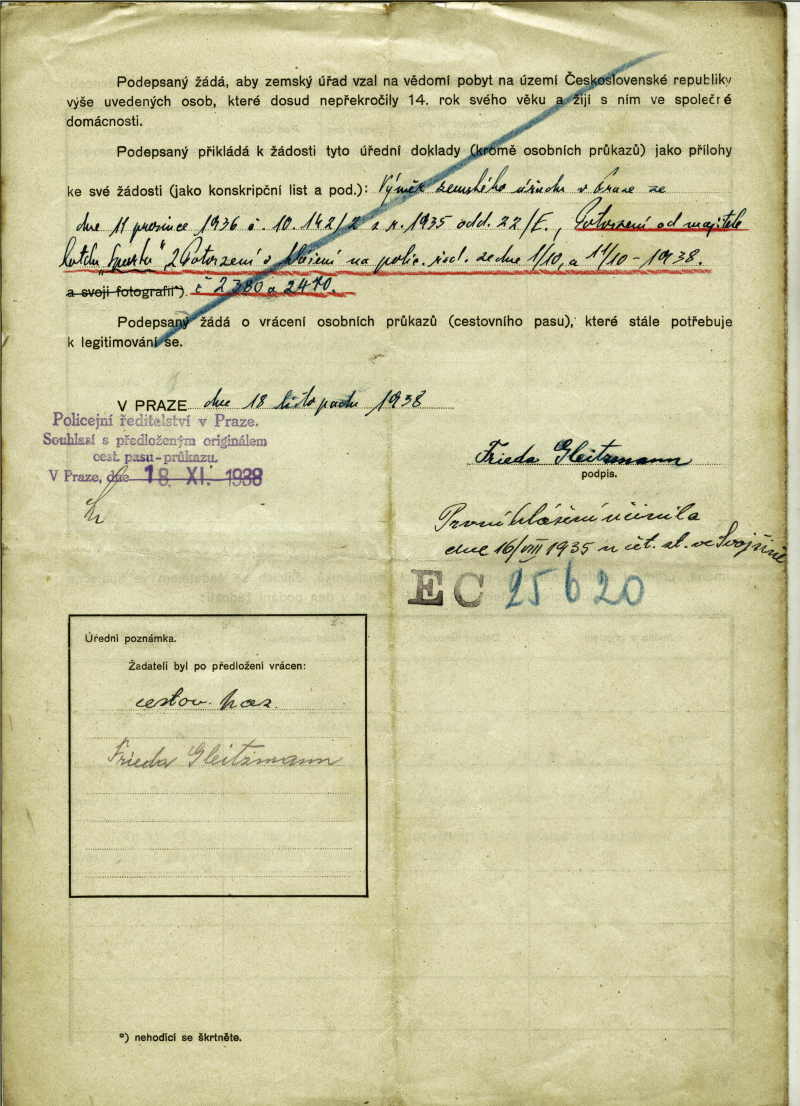 Podepsaný žádá, aby zemský úřad vzal na vědomí pobyt na území Československé republiky
výše uvedených osob, které dosud nepřekročily 14. rok svého věku a žijí s ním ve společné
domácnosti.
Podepsaný přikládá k žádosti tyto úřední doklady (kromě osobních průkazů) jako přílohy
ke své žádosti (jako konskripční list a pod.): Výměr zemského úřadu v Praze ze
dne 11 prosince 1936 č. 10.142/2 z r. 1935 odd. 22/E., Potvrzení od majitele
"Sparta" 2 Potvrzení o hlášení na polic. řed. ze dne 1/10, a 11/10 - 1938.
a svoji fotografii*) č 2380 a 2470.
Podepsaný žádá o vrácení osobních průkazů (cestovního pasu), které stále potřebuje
k legitimování se.
V PRAZE dne 18 listopadu 1938
Policejní ředitelství v Praze.
Souhlasí s předloženým originálem
cest. pasu-průkazu.
V Praze, dne 18. XI. 1938
Frieda Gleitzmann
podpis.
První hlášení učinila
dne 16/VIII 1935 u čet. st. ve Svojšíně
EC 25620
Úřední poznámka.
Žadateli byl po předložení vrácen:
cestov. pas.
Frieda Gleitzmann
*) nehodící se škrtněte.